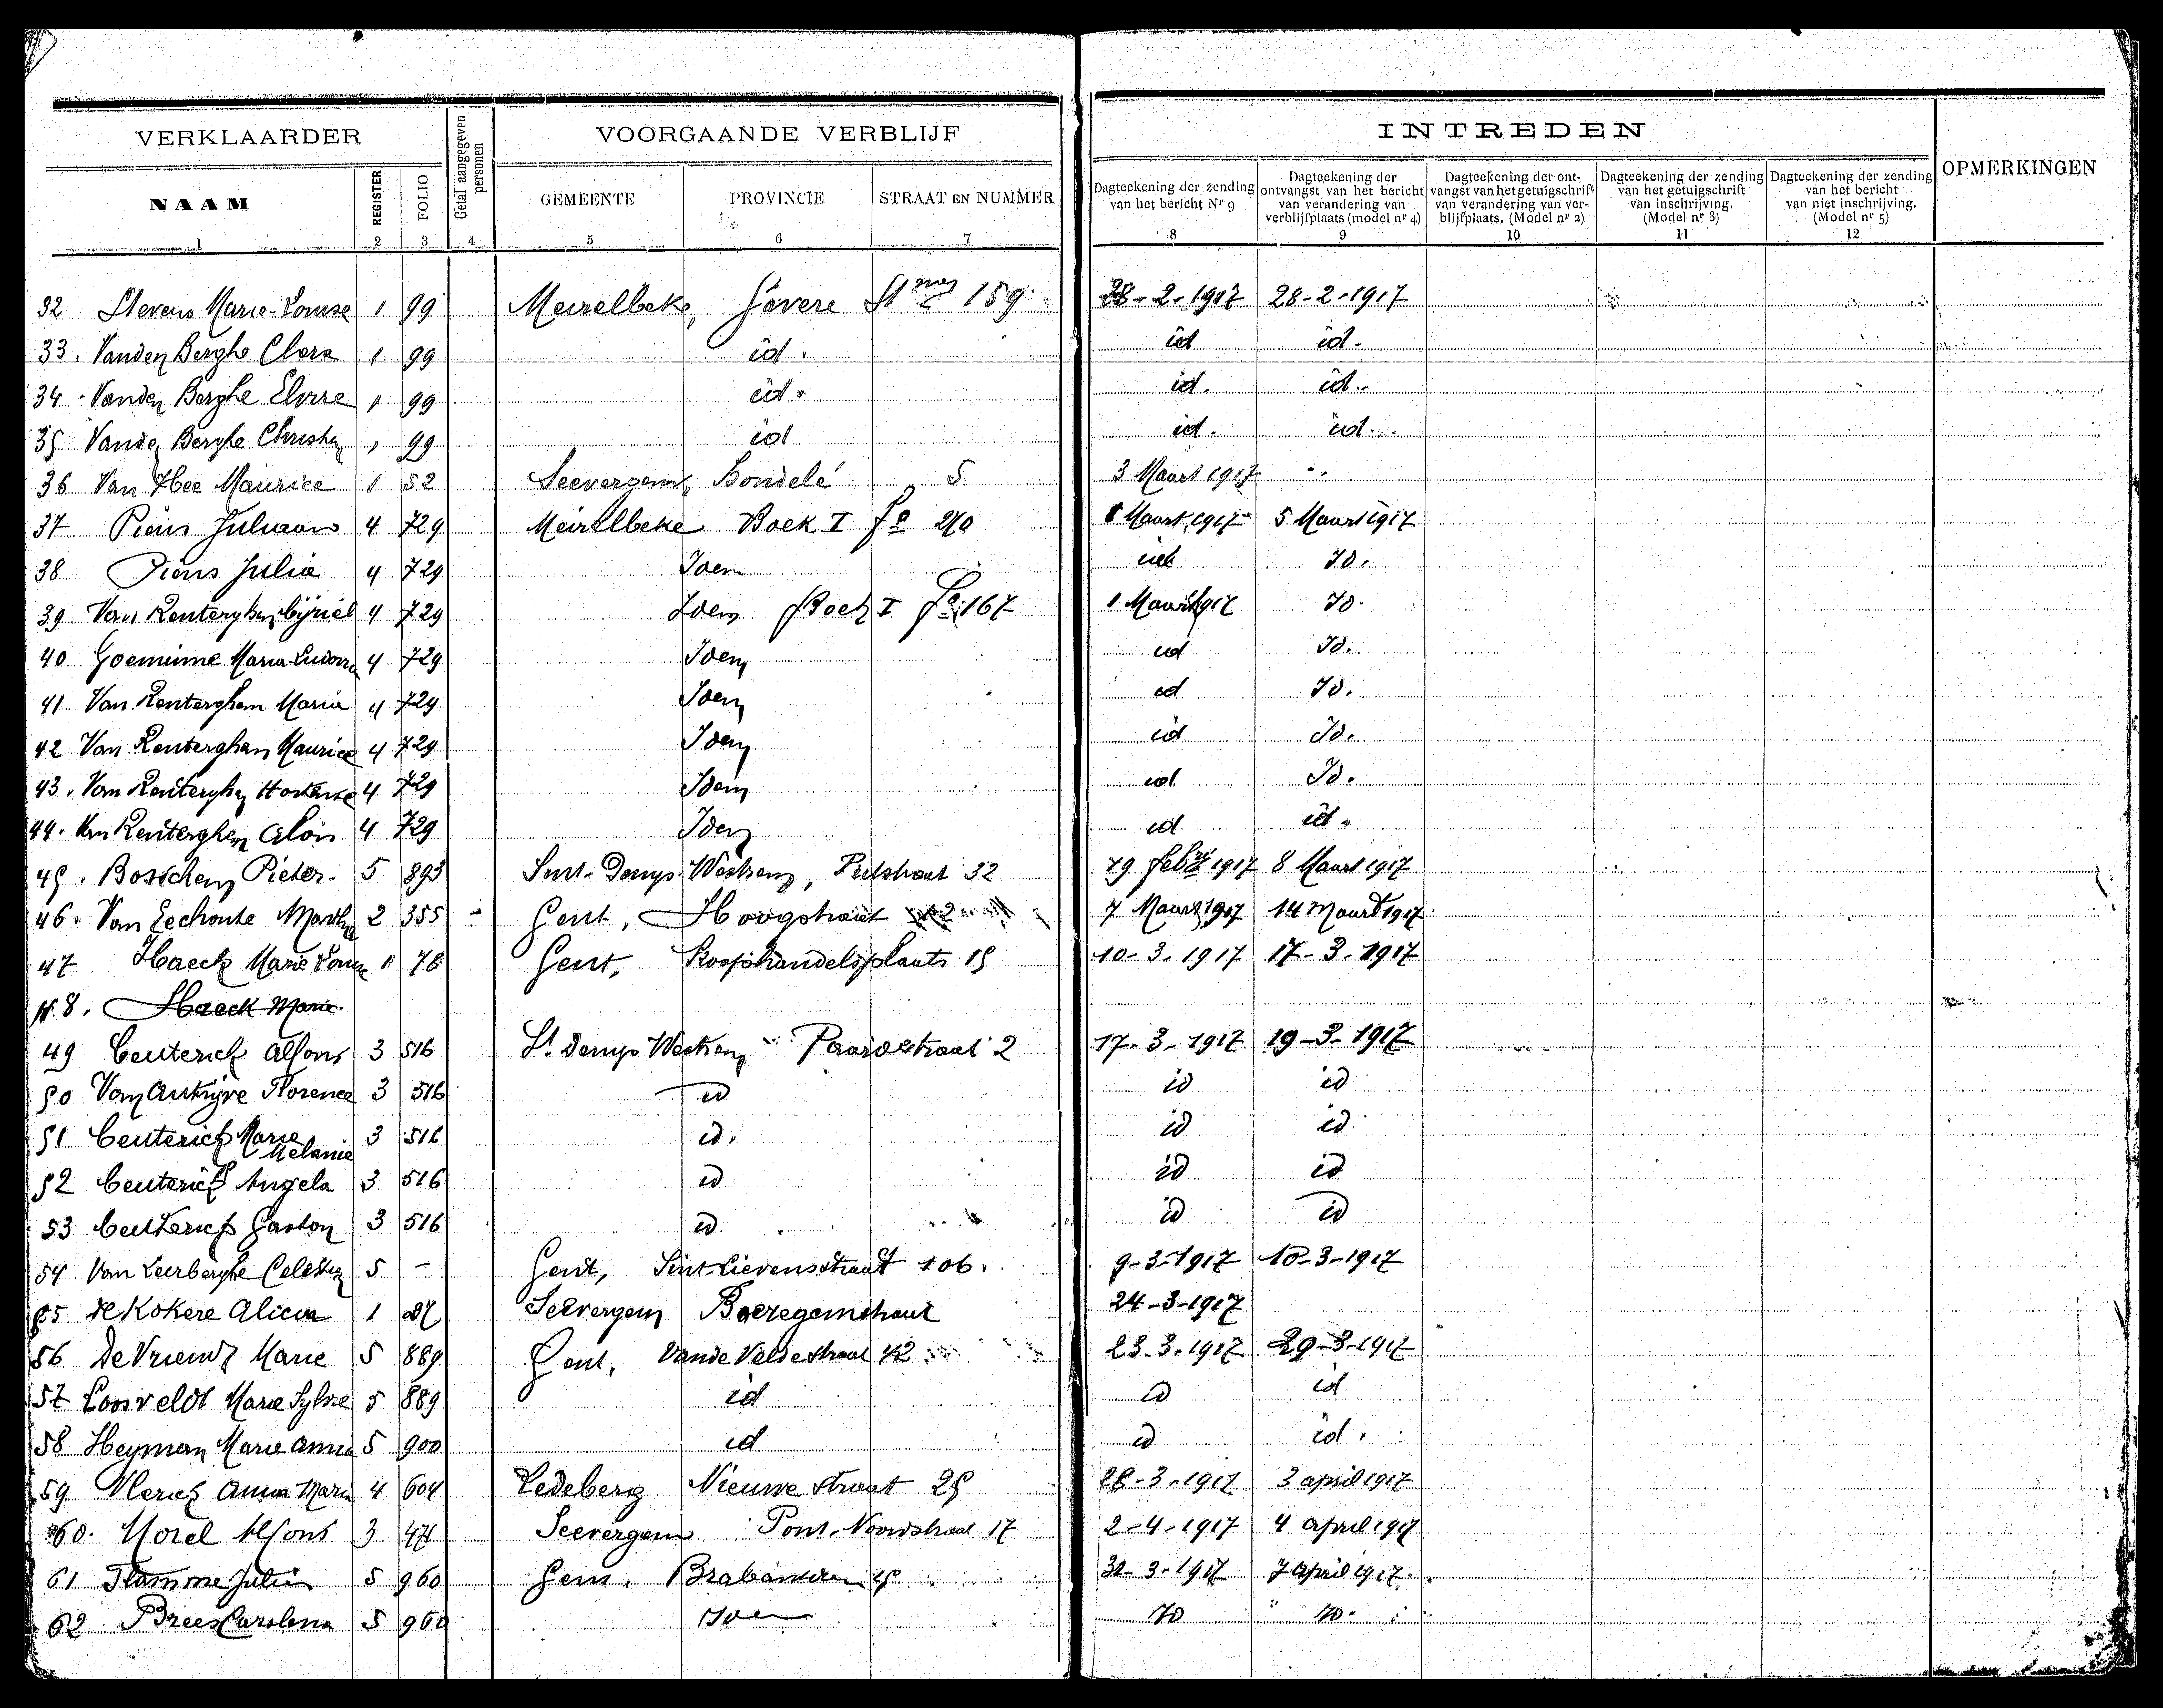 VERKLAARDER
Getal aangegeven personen
VOORGAANDE VERBLIJF
INTREDEN
OPMERKINGEN
NAAM
REGISTER
FOLIO
GEMEENTE
PROVINCIE
STRAAT EN NUMMER
Dagteekening der zending van het bericht Nr 9
Dagteekening der ontvangst van het bericht van verandering van verblijfplaats (model nr 4)
Dagteekening der ontvangst van het getuigschrift van verandering van verblijfplaats. (Model nr 2)
Dagteekening der zending van het getuigschrift van inschrijving. (Model nr 3)
Dagteekening der zending van het bericht van niet inschrijving. (Model nr 5)
1 2 3 4 5 6 7 8 9 10 11 12
32 Stevens Marie-Louise 1 99 Meirelbeke, Gavere 159 28-2-1917 28-2-1917
33. Vanden Berghe Clara 1 99 id. id id.
34 Vanden Berghe Elvire 1 99 id. id. id.
35 Vanden Berghe 1 99 id id. id.
36 Van Hee Maurice 1 52 Seevergem, 5 3 Maart 1917 "
37 Piens 4 729 Meirelbeke Boek I fo 1 Maart 1917 5 Maart 1917
38 Piens Julia 4 729 Idem id Id.
39 Van Renterghem Cyriel 4 729 Idem Boek I fo 167 1 Maart 1917 Id.
40 Goeminne Maria 4 729 Idem id Id.
41 Van Renterghem Maria 4 729 Idem id Id.
42 Van Renterghem Maurice 4 729 Idem id Id.
43. Van Renterghem Hortense 4 729 Idem id Id.
44. Van Renterghem Alois 4 729 Idem id id.
45. Pieter 5 893 Sint-Denys Westrem, Putstraat 32 19 febri 1917 8 Maart 1917
46. Van Eechoute Martha 2 355 Gent, Hoogstraat 7 Maart 1917 14 Maart 1917
47 Haeck Marie Louise 1 78 Gent, Koophandelsplaats 15 10-3-1917 17-3-1917
48. Haeck Marie
49 Ceuterick Alfons 3 516 St Denys Westrem Paardestraat 2 17-3-1917 19-3-1917
50 Van Autrijve Florence 3 516 id id id
51 Ceuterick Marie Melanie 3 516 id. id id
52 Ceuterick Angela 3 516 id id id
53 Ceuterick Gaston 3 516 id id id
54 Van Leerberghe Celestin 5 - Gent, Sint-Lievensstraat 106. 9-3-1917 10-3-1917
55 De Kokere Alicia 1 Seevergem 24-3-1917
56 De Vriendt Marie 5 889 Gent, Vande Veldestraat 23-3-1917 29-3-1917
57 Loosveldt Marie Sylvie 5 889 id id id
58 Heyman Marie Anna 5 900 id id id.
59 Vlerick Anna Maria 4 604 Ledeberg Nieuwe straat 25 28-3-1917 3 april 1917
60. Morel Alfons 3 471 Seevergem 17 2-4-1917 4 april 1917
61 Flamme 5 960 Gent. 3-1917 7 April 1917.
62 Brees Carolina 5 960 Idem Id Id.